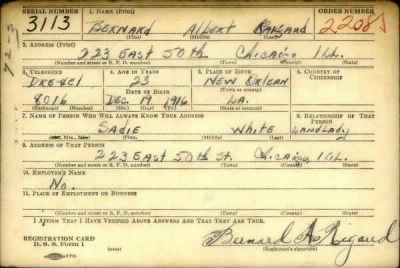 SERIAL NUMBER 1. NAME (Print) ORDER NUMBER
3113 BERNARD ALBERT 2208
(First) (Middle) (Last)
2. ADDRESS (Print)
223 EAST 50TH CHICAGO ILL.
(Number and street or R. F. D. number) (Town) (County) (State)
3. TELEPHONE 4. AGE IN YEARS 5. PLACE OF BIRTH 6. COUNTRY OF CITIZENSHIP
DREXEL 23 NEW ORLEAN
DATE OF BIRTH (Town or county)
8016 DEC 17 1916 LA.
(Exchange) (Number) (Mo.) (Day) (Yr.) (State or country)
7. NAME OF PERSON WHO WILL ALWAYS KNOW YOUR ADDRESS 8. RELATIONSHIP OF THAT PERSON
SADIE WHITE LANDLADY
(Mr., Mrs., Miss) (First) (Middle) (Last)
9. ADDRESS OF THAT PERSON
223 EAST 50TH ST. CHICAGO ILL.
(Number and street or R. F. D. number) (Town) (County) (State)
10. EMPLOYER'S NAME
NO.
11. PLACE OF EMPLOYMENT OR BUSINESS
(Number and street or R. F. D. number) (Town) (County) (State)
I AFFIRM THAT I HAVE VERIFIED ABOVE ANSWERS AND THAT THEY ARE TRUE.
REGISTRATION CARD
D. S. S. Form 1 Bernard A. Rigaud
(Registrant's signature)